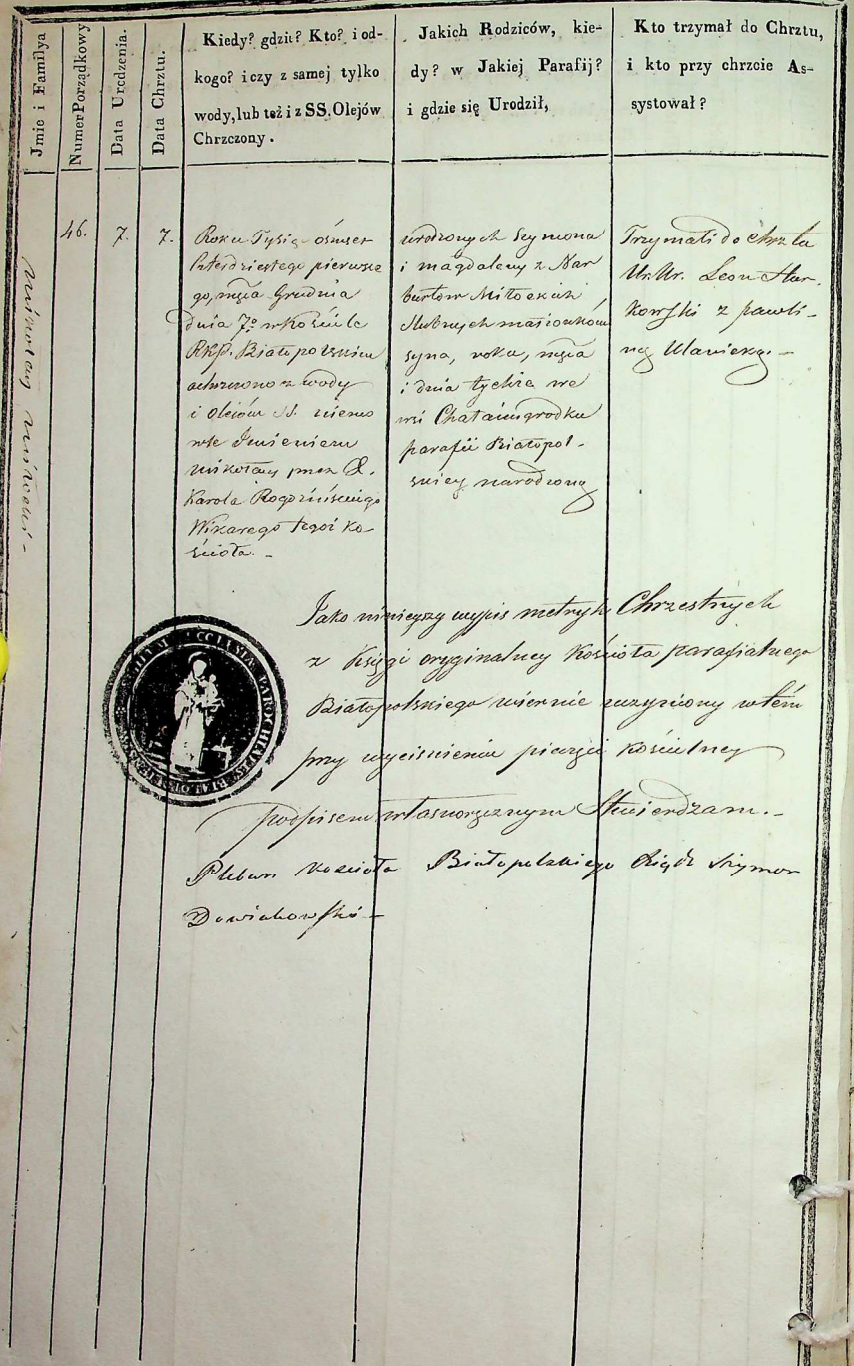 Jmie i Familya
Numer Porządkowy
Data Urodzenia.
Data Chrztu.
Kiedy? gdzie? Kto? i od-
kogo? i czy z samej tylko
wody, lub też i z SS. Olejów
Chrzczony.
Jakich Rodziców, kie-
dy? w Jakiej Parafij?
i gdzie się Urodził,
Kto trzymał do Chrztu,
i kto przy chrzcie As-
systował?
46.
7.
7.
Roku Tysiąc ośmset
czterdziestego pierwsze
go, mśca Grudnia
dnia 7º w Kościele
RKŚP. Białopolskim
ochrzczono z wody
i Olejów SS. niemo
wle Imieniem
Mikołay przez X.
Karola Rogozińskiego
Wikarego tegoż ko-
ścioła. -
urodzonych Szymona
i Magdaleny z Nar
buttów Miłockich
ślubnych małżonków
syna, roku, mśca
i dnia tychże we
wsi Chałaimgrodku
parafii Białopol-
skiey narodzone
Trzymali do chrztu
Ur. Ur. Leon
z Pauli-
ną
Jako niniejszy wypis metryk Chrzestnych
z Księgi oryginalney Kościoła parafialnego
Białopolskiego wiernie uczyniony w tém
przy wyciśnieniu pieczęci Kościelney
podpisem własnoręcznym Stwierdzam. -
Pleban Kościoła Białopolskiego Ksiądz Szymon